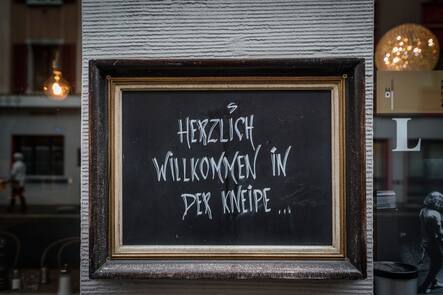 S
HERZLICH
WILLKOMMEN IN
DER KNEIPE...
L